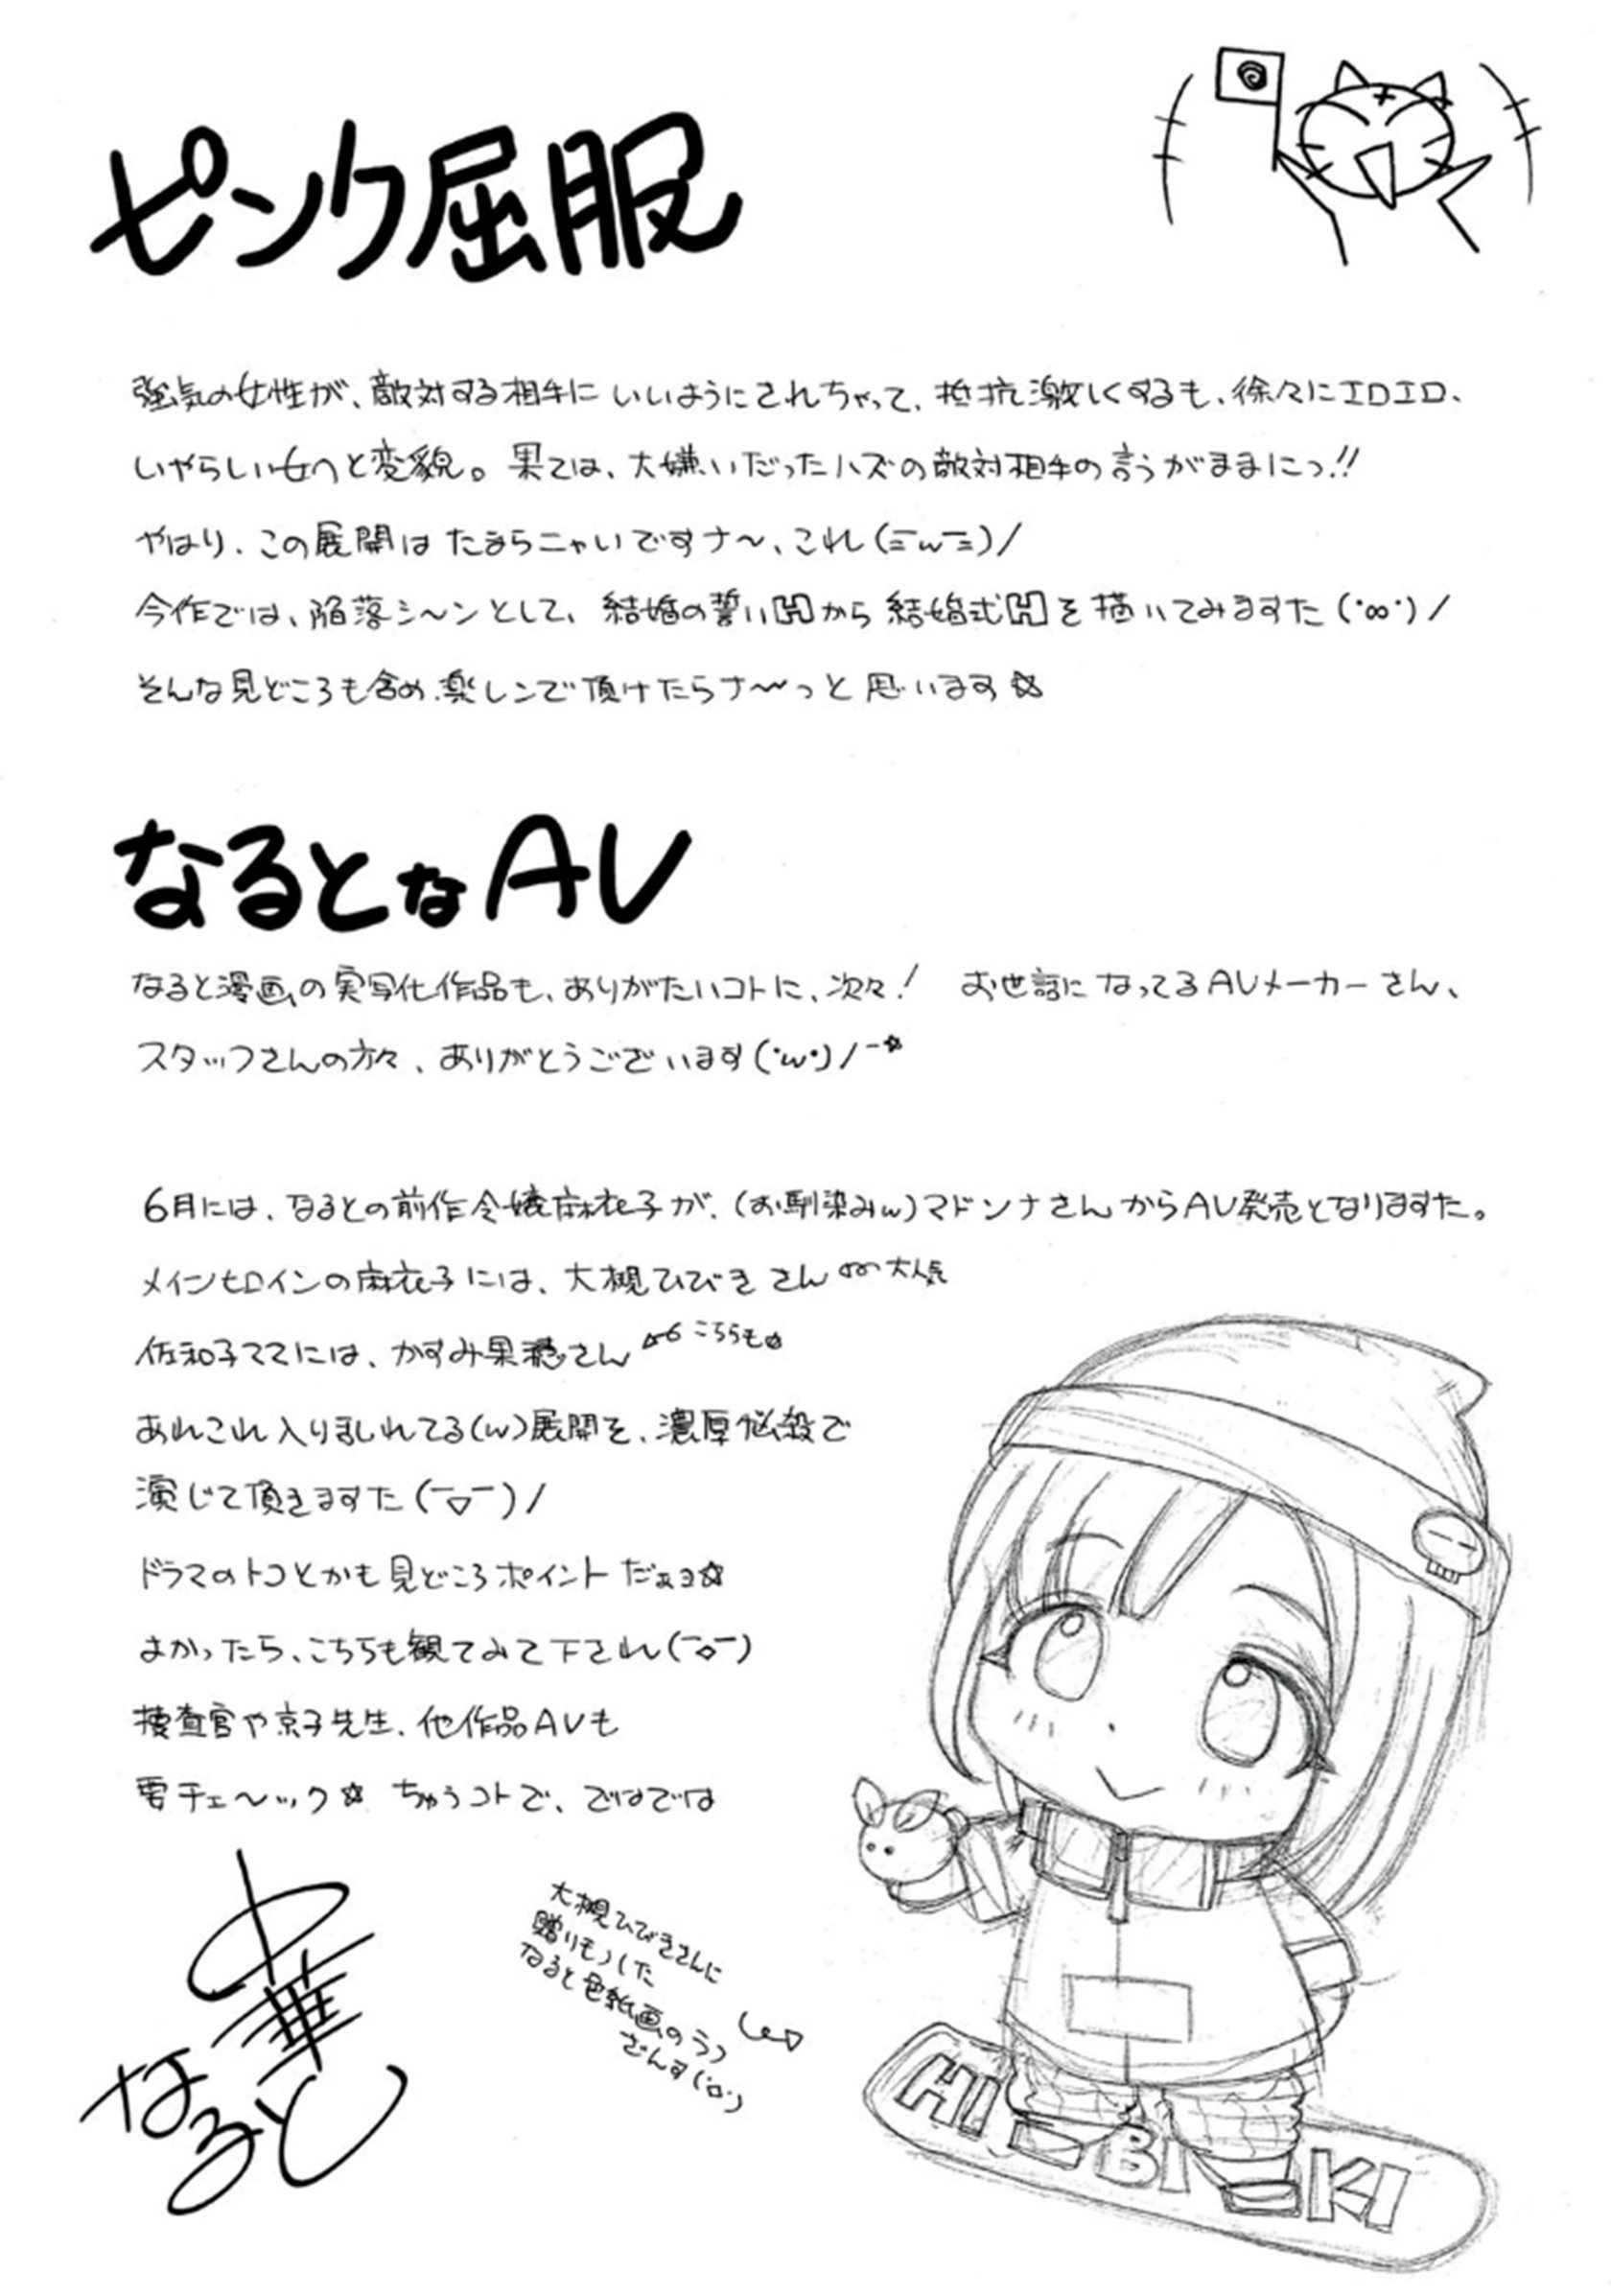 ピンク屈服
強気の女性が、敵対する相手にいいようにされちゃって、抵抗激しくするも、徐々にエロエロ、
いやらしい女へと変貌。果ては、大嫌いだったハズの敵対相手の言うがままにっ!!
やはり、この展開はたまらニャいですナ〜、これ(ﾆ￣w￣ﾆ)/
今作では、陥落シ〜ンとして、結婚の誓いHから結婚式Hを描いてみますた(･∞･)/
そんな見どころも含め、楽しンで頂けたらナ〜っと思います☆
なるとなAV
なると漫画の実写化作品も、ありがたいコトに、次々! お世話になってるAVメーカーさん、
スタッフさんの方々、ありがとうございます(･w･)/-☆
6月には、なるとの前作令嬢麻衣子が、(お馴染みw)マドンナさんからAV発売となりますた。
メインヒロインの麻衣子には、大槻ひびきさん 大人気
佐和子ママには、かすみ果穂さん こちらも
あれこれ入りまじれてる(w)展開を、濃厚悩殺で
演じて頂きますた(￣▽￣)/
ドラマのトコとかも見どころポイントだぁョ☆
よかったら、こちらも観てみて下され(￣◇￣)
捜査官や京子先生、他作品AVも
要チェ〜ック☆ ちゅうコトで、ではでは
中華なると
大槻ひびきさんに
贈りもノした
なると色紙画のラフ
ざんす(･ロ･)
HIBIKI